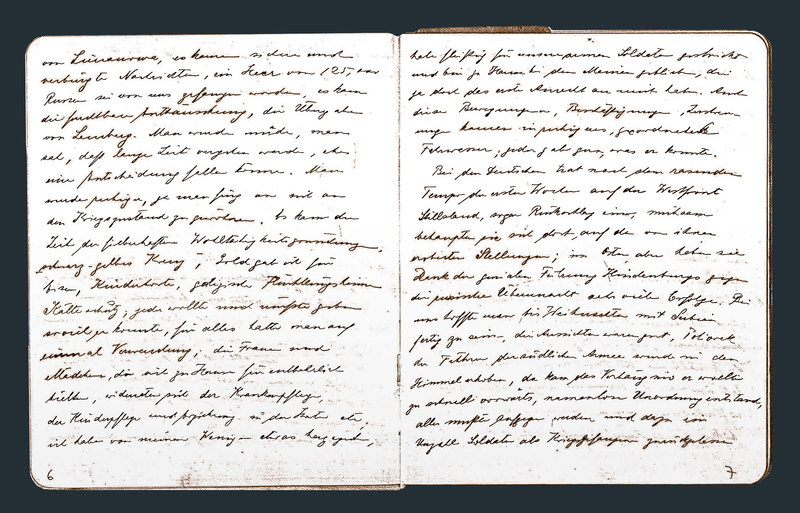 von Limanowa, es kamen sichere und
verbürgte Nachrichten, ein Heer von 125.000
Russen sei von uns gefangen worden, es kam
die furchtbare Enttäuschung, die Übergabe
von Lemberg. Man wurde müde, man
sah, daß lange Zeit vergehen werde, ehe
eine Entscheidung fallen könne. Man
wurde ruhiger, ja man fing an sich an
den Kriegszustand zu gewöhnen. Es kam die
Zeit der fieberhaften Wohltätigkeitsgründung,
schwarz-gelbes Kreuz, Gold gab ich für
Eisen, Kinderhorte, galizische Flüchtlingsheime
Kälteschutz, jeder wollte und mußte geben
soviel er konnte, für alles hatte man auf
einmal Verwendung, die Frauen und
Mädchen, die sich zu Hause für entbehrlich
hielten, widmeten sich der Krankenpflege,
der Kinderpflege und Erziehung in den Horten etc,
ich habe von meinem Wenigen etwas hergegeben,
6
habe fleißig für unsere armen Soldaten gestrickt
und bin zu Hause bei den Meinen geblieben, die
ja doch das erste Anrecht an mich haben. Auch
diese Bewegungen, Bestätigungen,
kamen in ruhigeres, geordnetes
Fahrwasser, jeder gab gern, was er konnte.
Bei den Deutschen trat nach dem rasenden
Tempo der ersten Wochen auf der Westfront
Stillstand, sogar Rückschlag ein, mühsam
behaupten sie sich dort, auf den von ihnen
eroberten Stellungen; im Osten aber haben sie
Dank der genialen Führung Hindenburgs gegen
die russische Übermacht sehr viele Erfolge. Bei
uns hoffte man bis Weihnachten mit Serbien
fertig zu sein, die Aussichten waren gut, Potiorek
der Führer der südlichen Armee wurde in den
Himmel erhoben, da kam das Verhängnis er wollte
zu schnell vorwärts, namenlose Unordnung entstand,
alles mußte werden und dazu eine
Unzahl Soldaten als Kriegsgefangene zurückgelassen
7